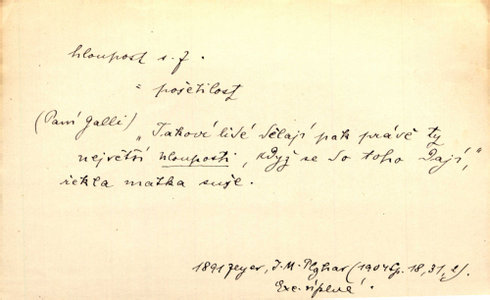 hloupost s. f.
= pošetilost
(Paní Galli) „Takoví lidé dělají pak právě ty
největší hlouposti, když se do toho dají,"
řekla matka suše.
1891 Zeyer, J. M. Plojhar (1904 Sp. 18, 31, 2)
Exc. úplné.